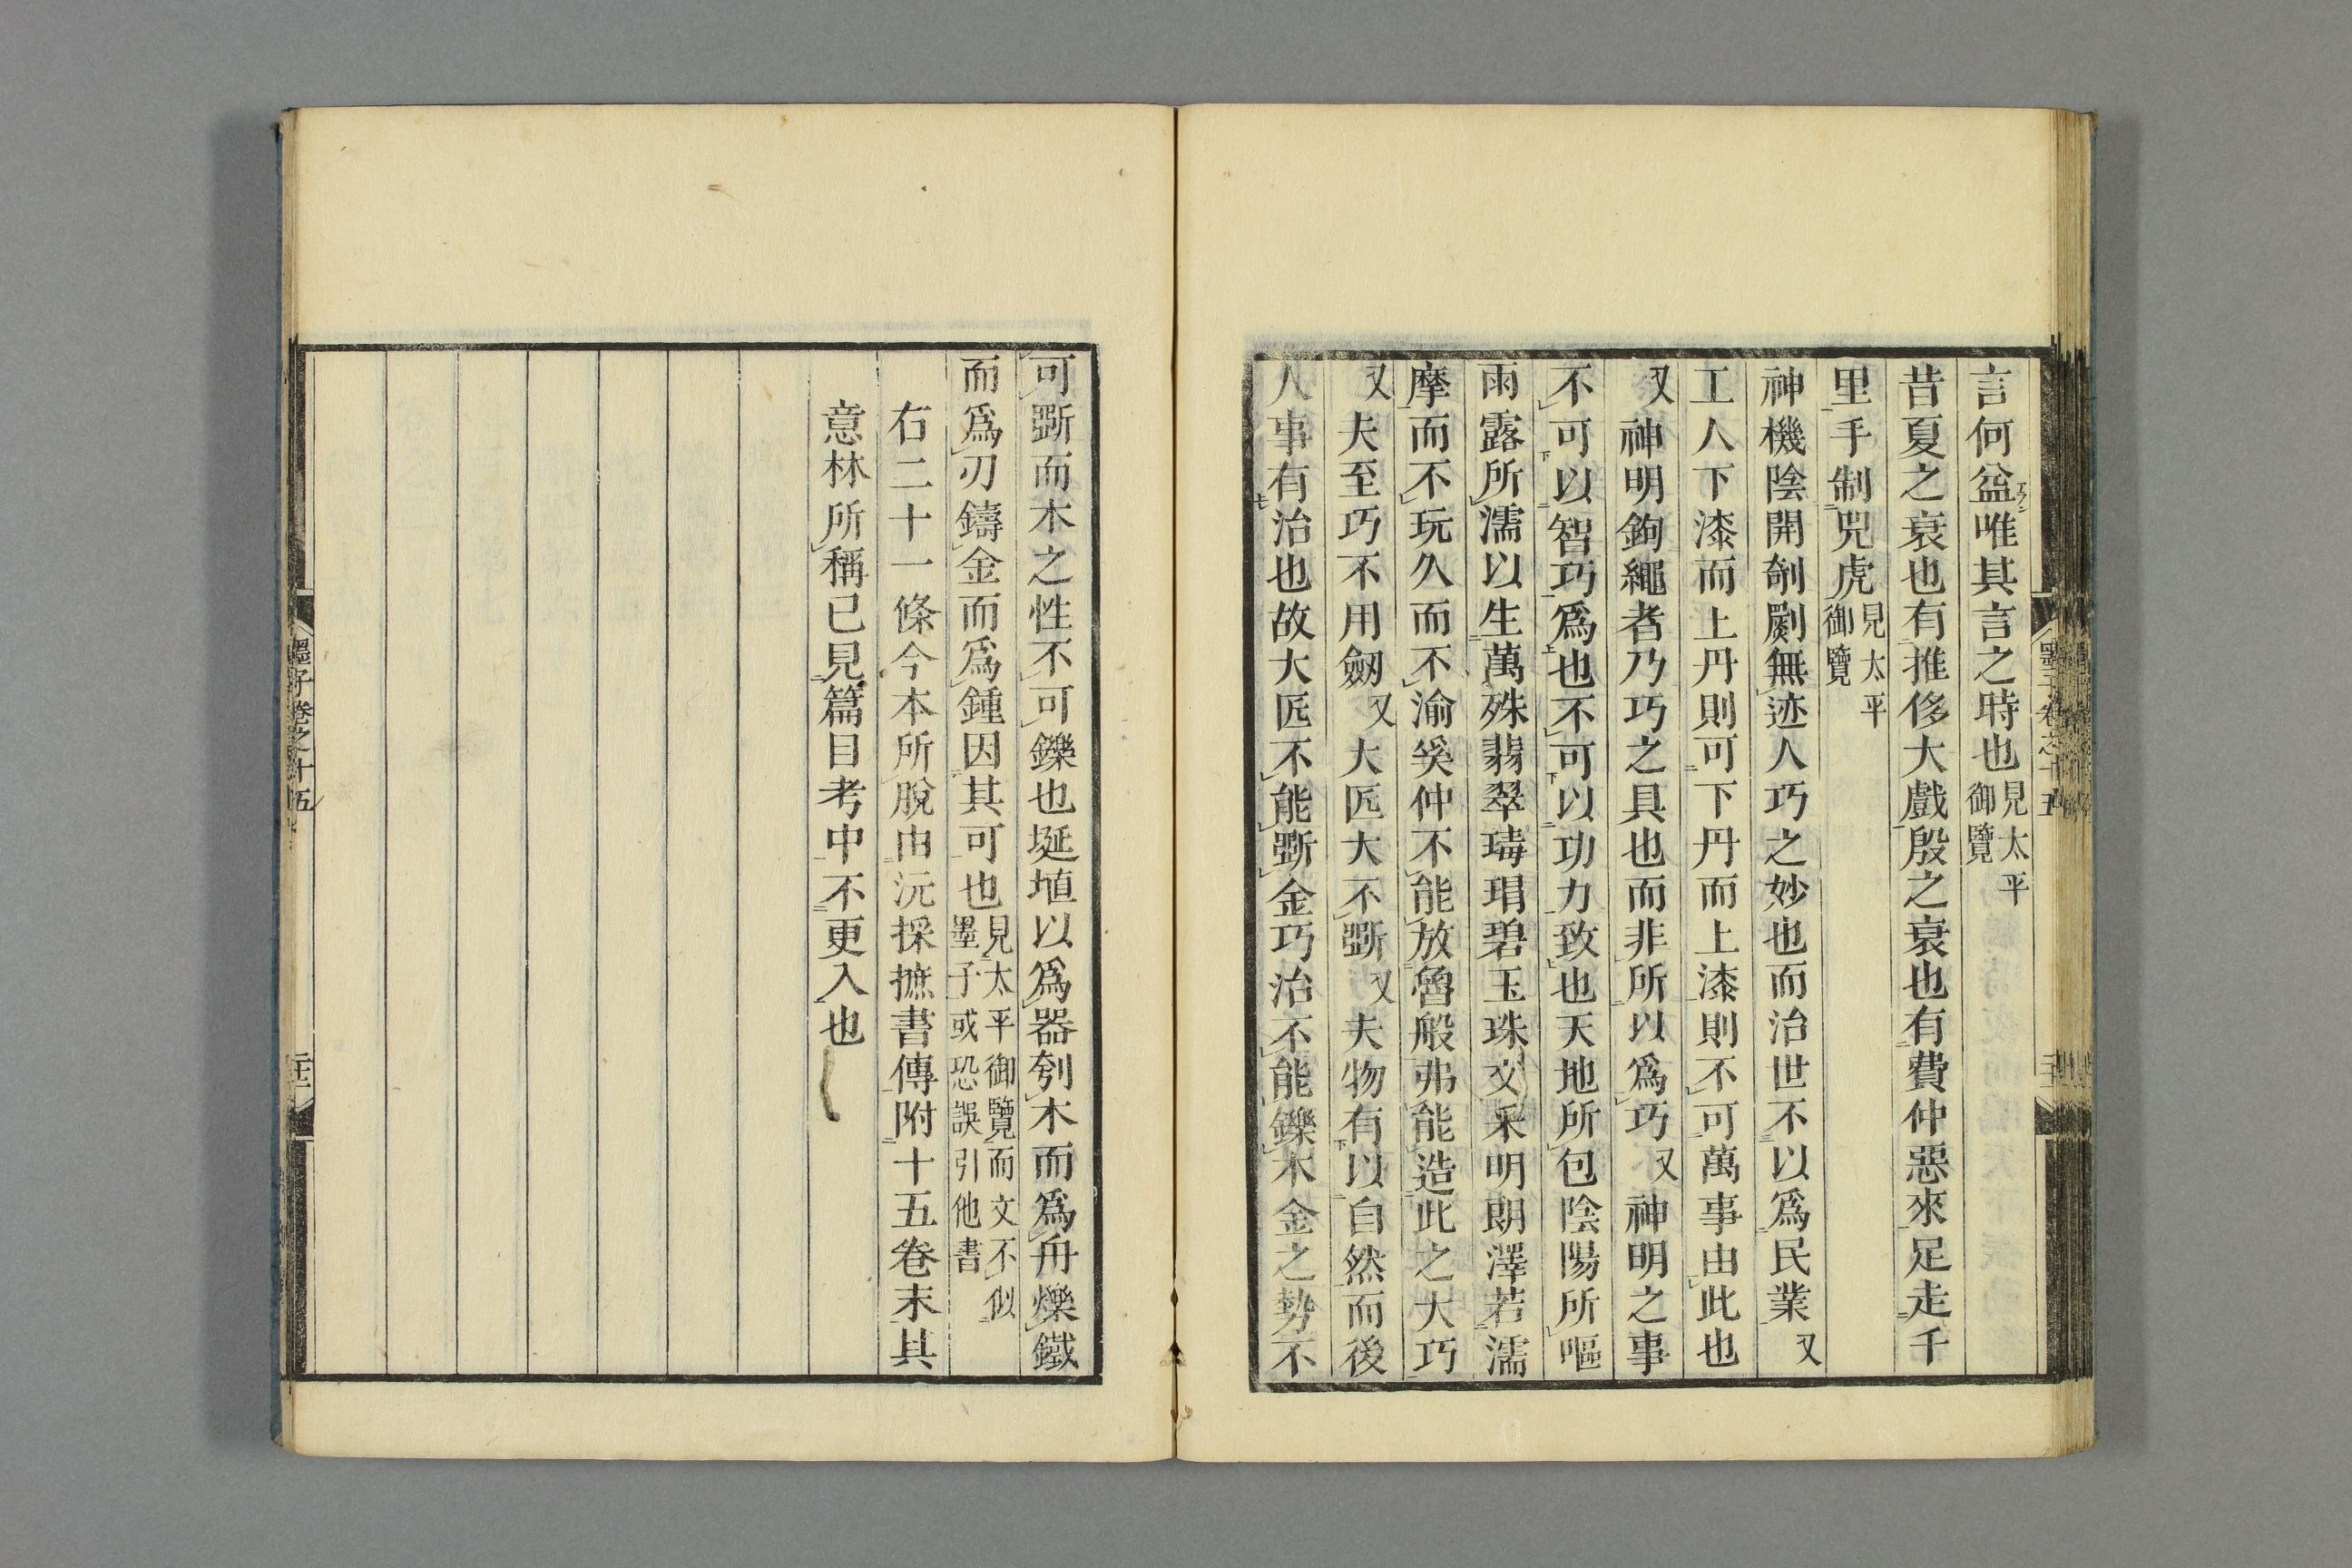 言何益唯其言之時也見太平御覽
昔夏之衰也有推侈大戲殷之衰也有費仲惡來足走千
里手制兕虎見太平御覽
神機陰開剞劂無迹人巧之妙也而治世不以爲民業又
工人下漆而上丹則可下丹而上漆則不可萬事由此也
又神明鉤繩者乃巧之具也而非所以爲巧又神明之事
不可以智巧爲也不可以功力致也天地所包陰陽所嘔
雨露所濡以生萬殊翡翠瑇瑁碧玉珠文采明朗澤若濡
摩而不玩久而不渝奚仲不能放魯般弗能造此之大巧
又夫至巧不用劒又大匠大不斲又夫物有以自然而後
人事有治也故大匠不能斲金巧治不能鑠木金之勢不
墨子卷之十五
可斲而木之性不可鑠也埏埴以爲器刳木而爲舟爍鐵
而爲刃鑄金而爲鍾因其可也見太平御覽而文不似墨子或恐誤引他書
右二十一條今本所脫由沅採摭書傳附十五卷末其
意林所稱已見篇目考中不更入也
墨子卷之十五